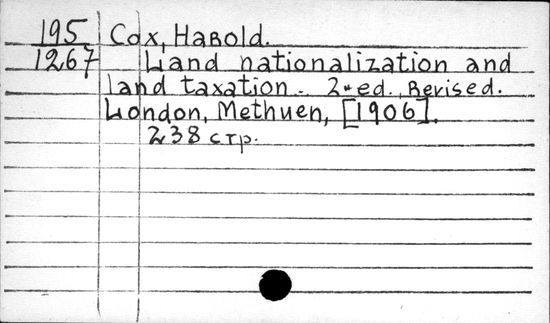 195 Cox, Harold.
1267 Land nationalization and
land taxation. 2-ed., Revised.
London, Methuen, [1906].
238 стр.